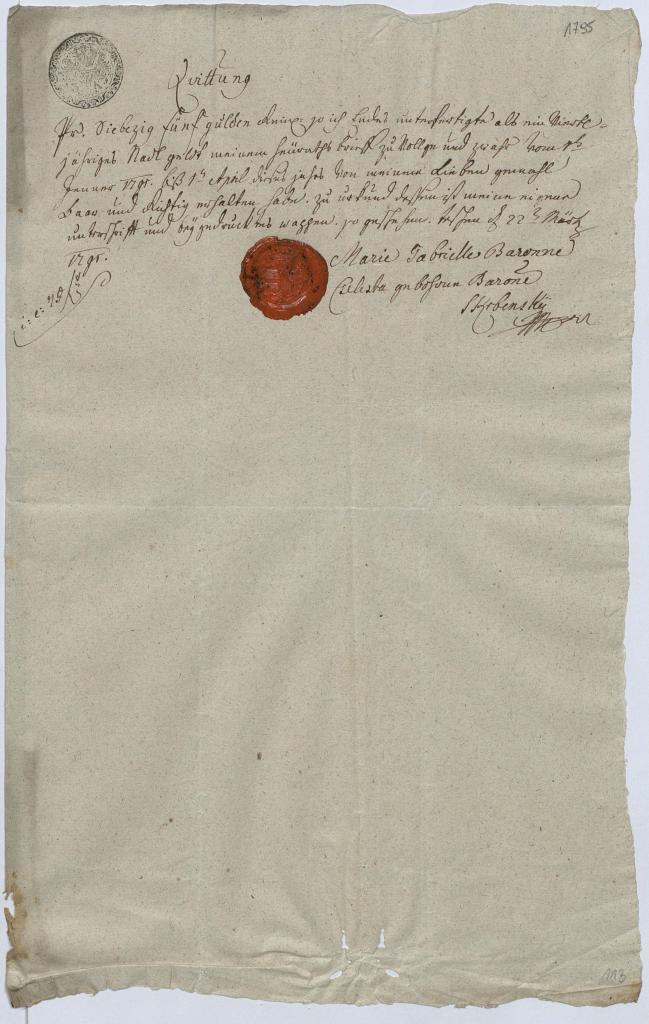 1795
Quittung
Pr. Siebezig fünf gulden Reinz: so ich Endes unterfertigte als ein Viertl-
jähriges Nadl geldt meinem heuraths brieff zu Folge und zwahr Vom 1ten
Jenner 1795. biß 1ten April dieses jahrs Von meinem Lieben gemahl
Baar und Richtig erhalten habe. zu urkund dessen ist meine eigene
unterschrifft und beygedrucktes wappen. so geschehen. teschen d 22ten Märtz
1795.
Marie Gabrielle Baronne
i: e: 75 f
Celesta gebohrne Barone
Skrbensky
113